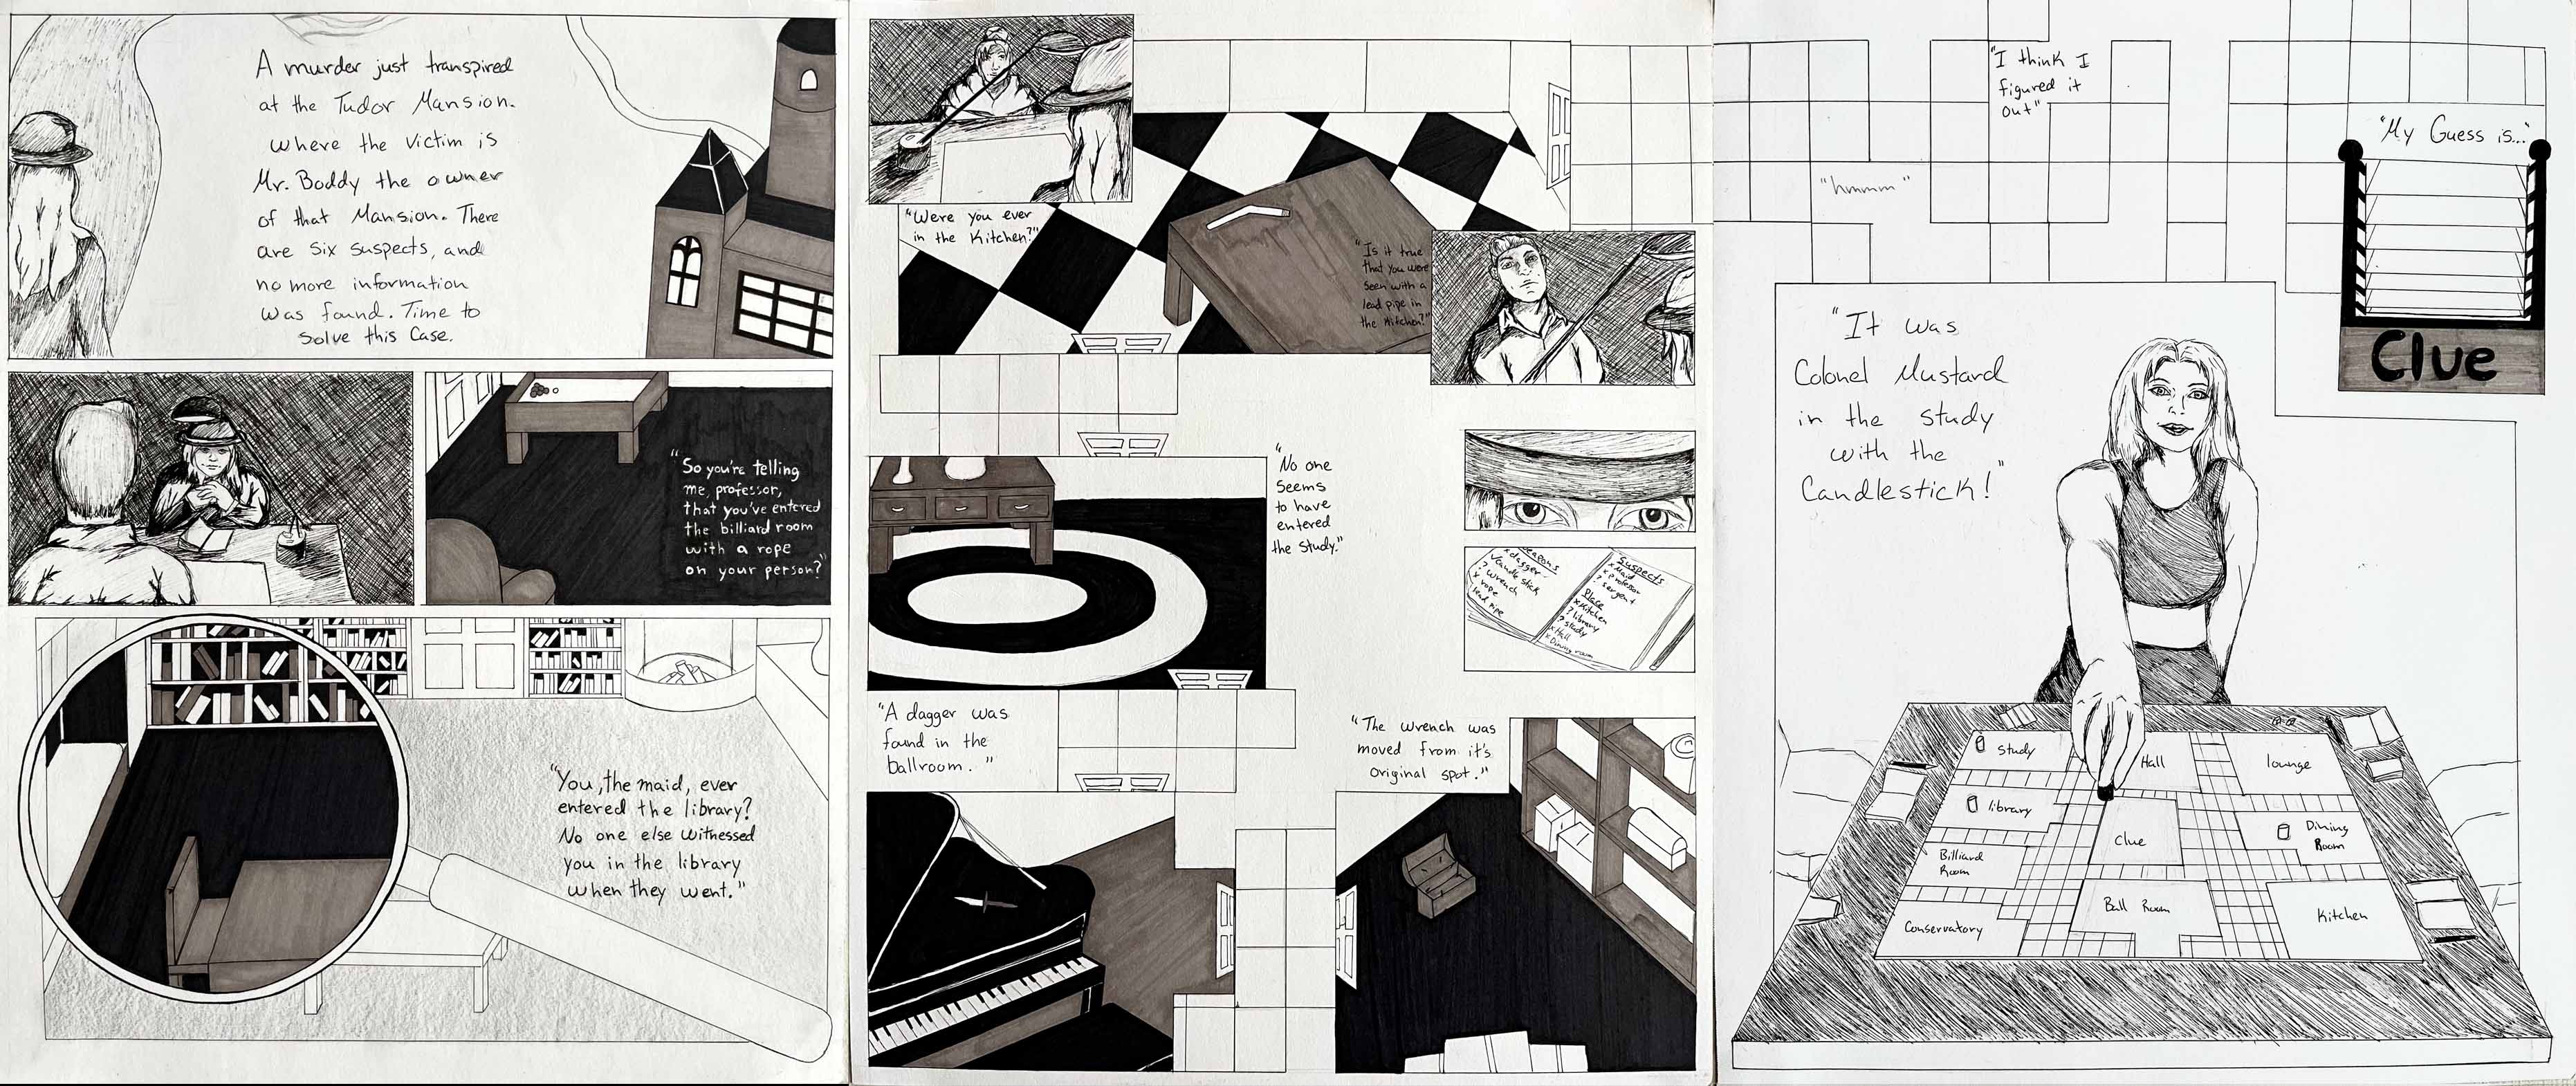 A murder just transpired
at the Tudor Mansion.
where the victim is
Mr. Boddy the owner
of that Mansion. There
are six suspects, and
no more information
was found. Time to
solve this case.
"So you're telling
me, professor,
that you've entered
the billiard room
with a rope
on your person?"
"You, the maid, ever
entered the library?
No one else witnessed
you in the library
when they went."
"Were you ever
in the Kitchen?"
"Is it true
that you were
seen with a
lead pipe in
the Kitchen?"
"No one
seems
to have
entered
the study."
weapons
x dagger
✓ Candle stick
? wrench
x rope
lead pipe
Suspects
x Maid
x Professor
? sergent
Place
x Kitchen
? library
? study
x Hall
x Dining room
"A dagger was
found in the
ballroom."
"The wrench was
moved from it's
original spot."
"I think I
figured it
out"
"hmmm"
"My Guess is..."
Clue
"It was
Colonel Mustard
in the study
with the
Candlestick!"
study
Hall
lounge
library
Clue
Dining
Room
Billiard
Room
Ball Room
Kitchen
Conservatory